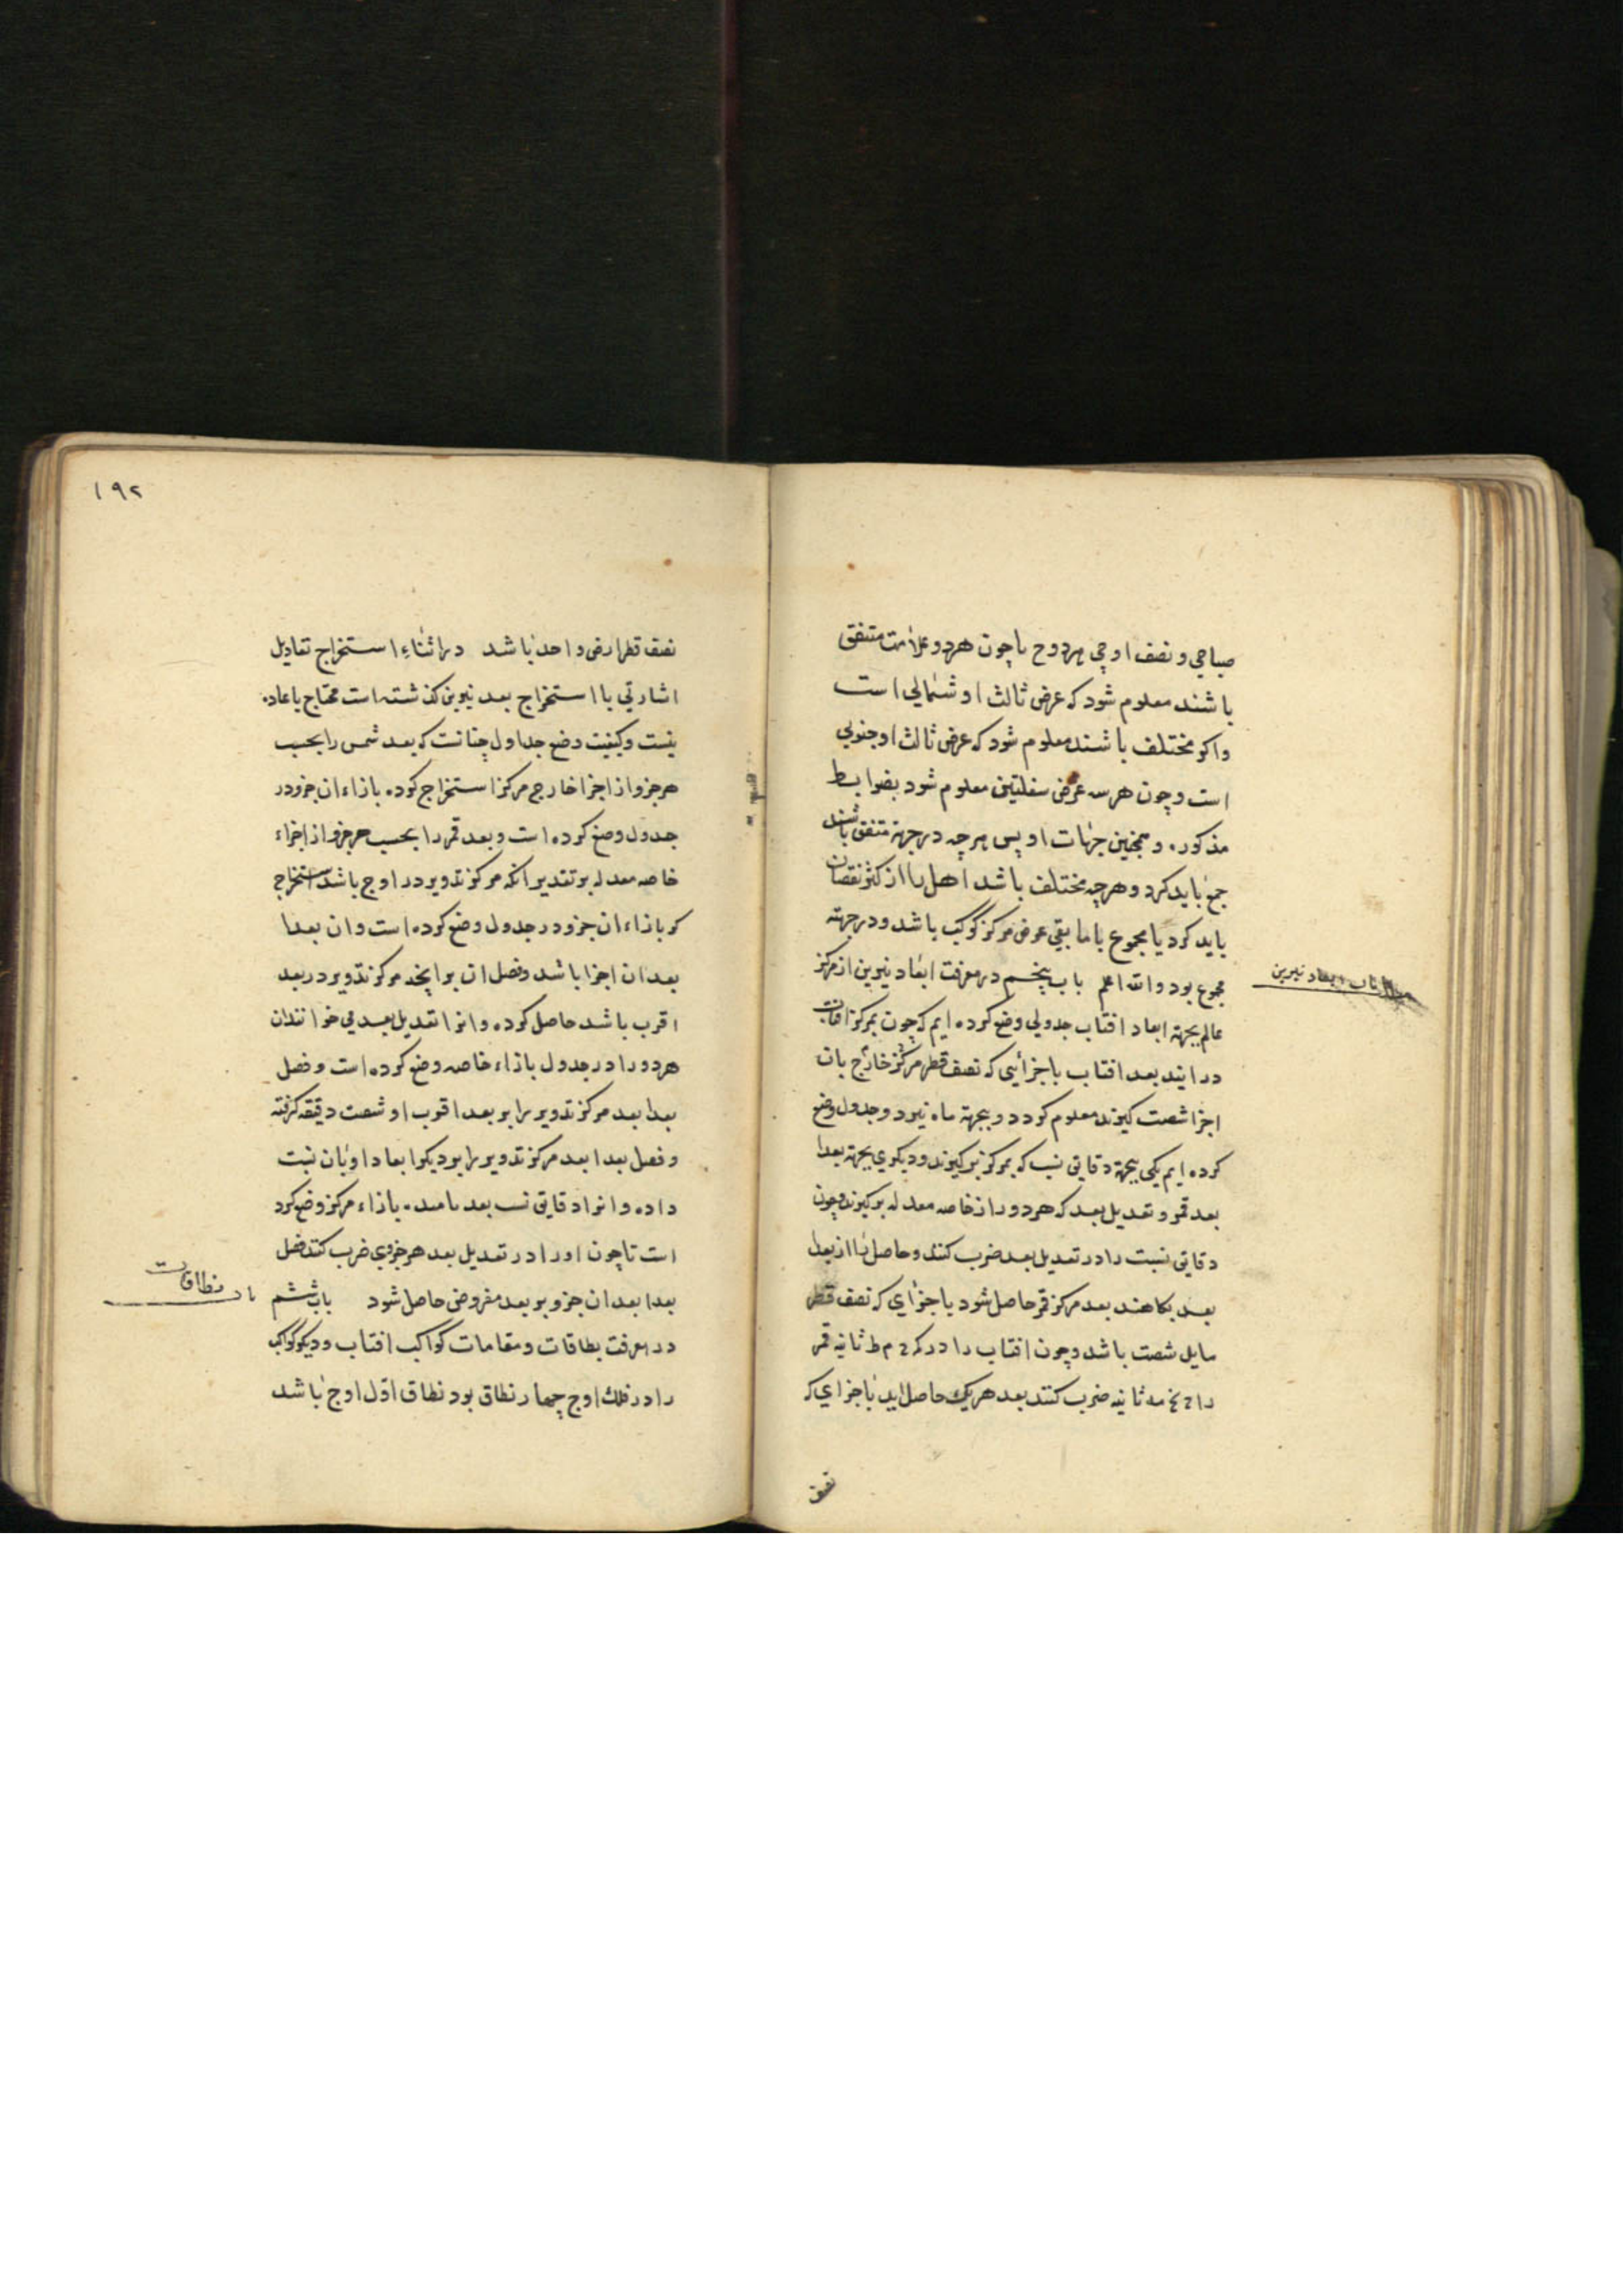 صباحي و نصف اوجي هر دو ح يا چون هر دو علامت متفق
باشند معلوم شود که عرض ثالث او شمالي است
واکر مختلف باشند معلوم شود که عرض ثالث او جنوبي
است و چون هر سه عرض سفليتين معلوم شود بضوابط
مذکوره و همچنين جهات او پس هر چه در جهة متفق باشند
جمع بايد کرد و هر چه مختلف باشد اقل را از اکثر نقصان
بايد کرد يا مجموع يا ما بقي عرض مرکز کوکب باشد و در جهته
مجموع بود والله اعلم باب پنجم در معرفت ابعاد نيرين از مرکز
باب ابعاد نيرين
عالم بجهة ابعاد افتاب جدولي وضع کرده ايم که چون بمرکز افتاب
در ايند بعد افتاب باجزائي که نصف قطر مرکز خارج بان
اجزا شصت کيرند معلوم کردد و بجهة ماه نيز دو جدول وضع
کرده ايم يکي بجهة دقايق نسب که بمرکز برکيرند و ديکري بجهة بعدا
بعد قمر و تعديل بعد که هر دو را از خاصه معدله برکيرند و چون
دقايق نسبت را در تعديل بعد ضرب کنند و حاصل را از بعدا
بعد بکاهند بعد مرکز قمر حاصل شود باجزاي که نصف قطر
مايل شصت باشد و چون افتاب را در که م ط ثانيه قمر
را نح مه ثانيه ضرب کنند بعد هر يک حاصل ايد باجزاي که
نصف
١٩٢
نصف قطر ارض واحد باشد در اثناء استخراج تعاديل
اشارتي با استخراج بعد نيرين کذشته است محتاج باعاده
نيست و کيفيت وضع جداول چنانست که بعد شمس را بحسب
هر جزو از اجزا خارج مرکز استخراج کرده بازاء ان جزو در
جدول وضع کرده است و بعد قمر را بحسب هر جزو از اجزاء
خاصه معدله بر تقدير انکه مرکز تدوير در اوج باشد استخراج
کر بازاء ان جزو در جدول وضع کرده است و ان بعدا
بعد ان اجزا باشد و فضل ان بر انچه مرکز تدوير در بعد
اقرب باشد حاصل کرده و انرا تعديل بعد مي خوانند ان
هر دو را در جدول بازاء خاصه وضع کرده است و فضل
بعدا بعد مرکز تدوير را بر بعد اقرب او شصت دقيقه کرفته
و فضل بعدا بعد مرکز تدوير را بر ديکر ابعاد او بان نسبت
داده و انرا دقايق نسب بعد نامند بازاء مرکز وضع کرد
است تا چون او را در تعديل بعد هر جزوي ضرب کنند فضل
بعدا بعد ان جزو بر بعد مفروض حاصل شود باب ششم
باب نطاقات
در معرفت نطاقات و مقامات کواکب افتاب و ديکر کواکب
را در فلک اوج چهار نطاق بود نطاق اوّل اوج باشد